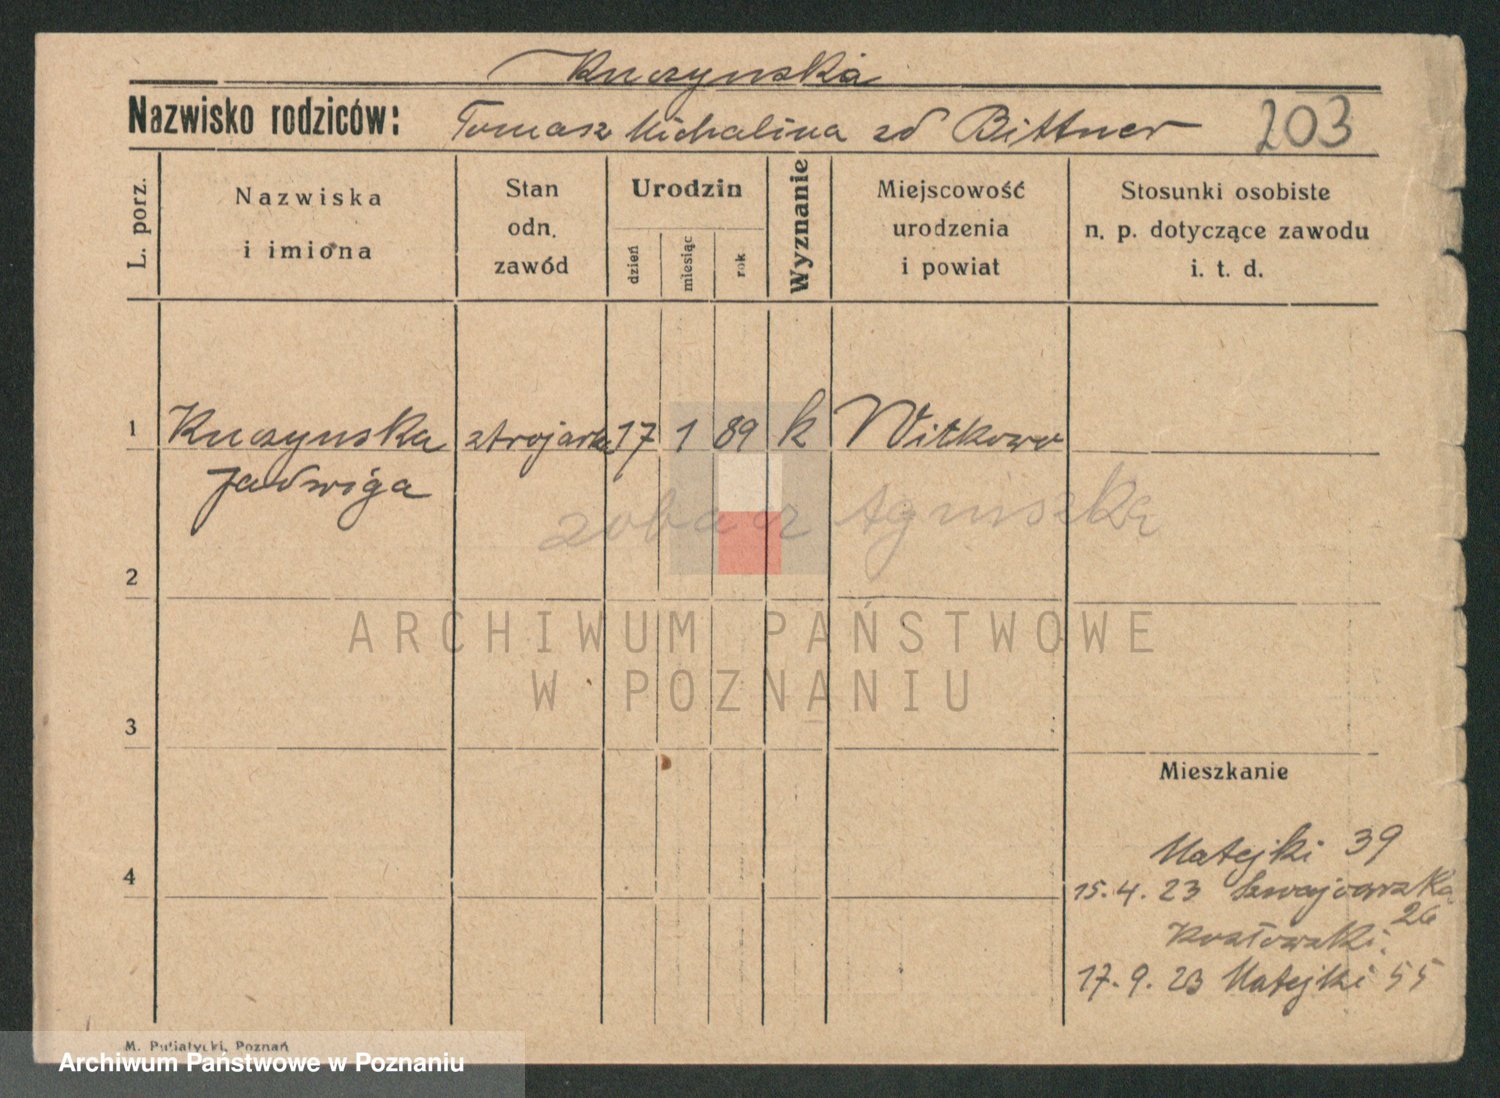 Kuczynska
Nazwisko rodziców: Tomasz Michalina zd Bittner 203
L. porz.
Nazwiska
i imiona
Stan
odn.
zawód
Urodzin
dzień
miesiąc
rok
Wyznanie
Miejscowość
urodzenia
i powiat
Stosunki osobiste
n. p. dotyczące zawodu
i. t. d.
1 Kuczynska strojarka 17 1 89 k Witkowo
Jadwiga
zobacz Agniszka
2
ARCHIWUM PAŃSTWOWE
W POZNANIU
3
Mieszkanie
Matejki 39
4
15.4.23 Szwajcarska
26
Kozłowski
17.9.23 Matejki 55
M. Putiatycki, Poznań
Archiwum Państwowe w Poznaniu